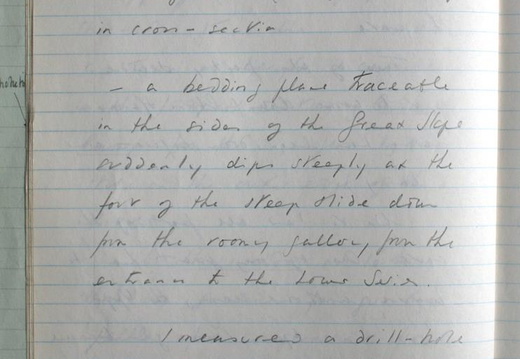 in cross-section
- a bedding plane traceable
in the sides of the Great Slope
suddenly dips steeply at the
foot of the steep slide down
from the roomy gallery, from the
entrance to the Lower Series.
I measured a drill-hole